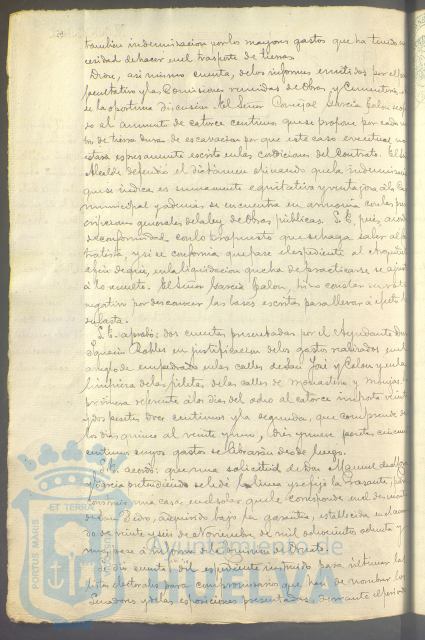 tambien indemnizacion por los mayores gastos que ha tenido
cesidad de hacer en el trasporte de tierras.
Diose, asi mismo cuenta, de los informes emitidos por el
facultativo y las Comisiones reunidas de Obras y Cementerio,
se la oportuna discusion. El Señor Concejal Garcia Calon
so al aumento de catorce centimos que se propone por cada
tro de tierra dura de escavacion por que este caso eventual no
estaba espresamente escrito en las condiciones del Contrato. El
Alcalde defendió el dictamen opinando que la indemnizacion
que se indica es sumamente equitativa y ventajosa a los
municipal y ademas se encuentra en armonia con las
generales de la ley de Obras públicas. S.E. pues,
de conformidad con lo propuesto que se haga saber al
tratista, y si se conforma que pase el espediente al Arquitecto
a fin de que, en la liquidacion que ha de practicarse se
a lo resuelto. El Señor Garcia Calon, hizo constar su voto
negativo por desconocer las bases escritas para llevar a efecto la
subasta.
S.E. aprobó: dos cuentas presentadas por el Ayudante Don
Ignacio Robles en justificacion de los gastos realizados en el
arreglo de empedrado en las calles de San José y Colon y en la
limpieza de las piletas de las calles de Monasterio y Monjas.
primera referente a los dias del ocho al catorce importa
y dos pesetas doce centimos y la segunda, que comprende de
los dias quince al veinte y uno, diez y nueve pesetas
centimos cuyos gastos se libraran desde luego.
S.E. acordó: que una solicitud de Don Manuel de
y Garcia pretendiendo se le dé la linea y se fije la rasante, para
construir una casa, en el solar que le corresponde en el
adquirido bajo la garantia, establecida en el
do de veinte y seis de Noviembre de mil ochocientos ochenta y
pase a informe de la Comision de Ornato.
Se dió cuenta del espediente instruido para ultimar las
listas electorales para compromisarios que han de nombrar los
Senadores y de las esposiciones presentadas, durante el periodo
PORTUS MARIS
ET TERRAE
Ayuntamiento de
HUELVA